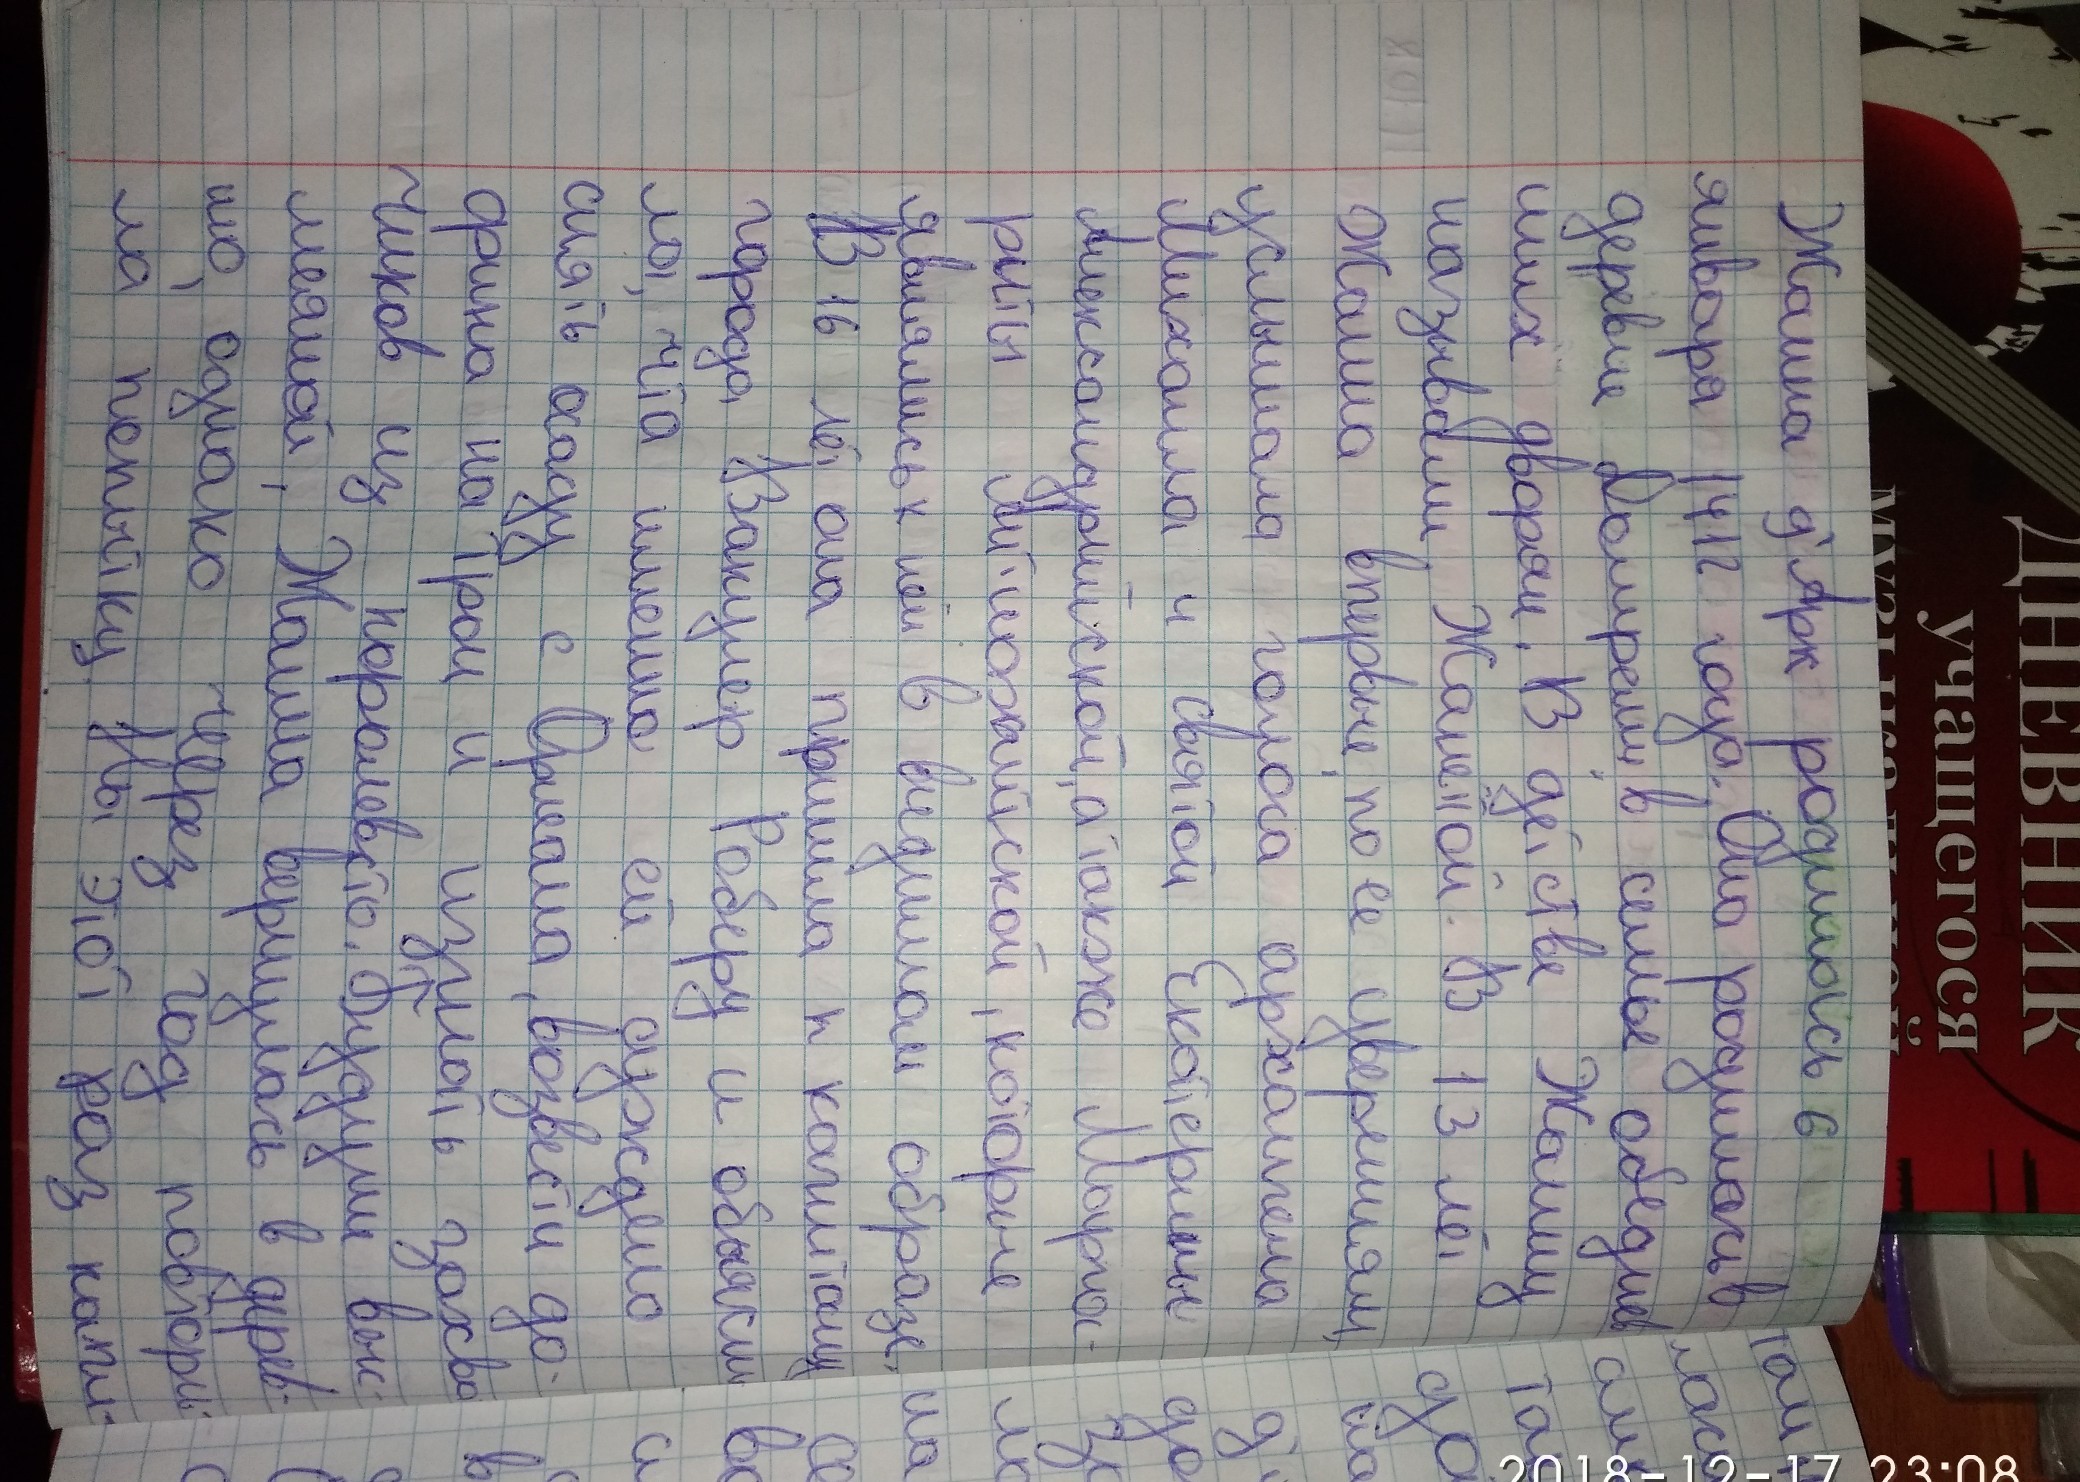 Жанна д'Арк родилась 6
января 1412 года. Она родилась в
деревне Домреми в семье обеднев
ших дворян. В детстве Жанну
называли Жаннетой. В 13 лет
Жанна впервые, по ее уверениям,
услышала голоса архангела
Михаила и святой Екатерины
Александрийской, а также Марга-
риты Антиохийской, которые
являлись к ней в видимом образе.
В 16 лет она пришла к капитану
города Вакулер Роберу и объясни
ла, что именно ей суждено
снять осаду с Орлеана, возвести до-
фина на трон и изгнать захва
тчиков из королевства. Будучи выс-
меяной, Жанна вернулась в дерев-
ню, однако через год повтори-
ла попытку. На этот раз капи-
ДНЕВНИК
учащегося
2018-12-17 23:08